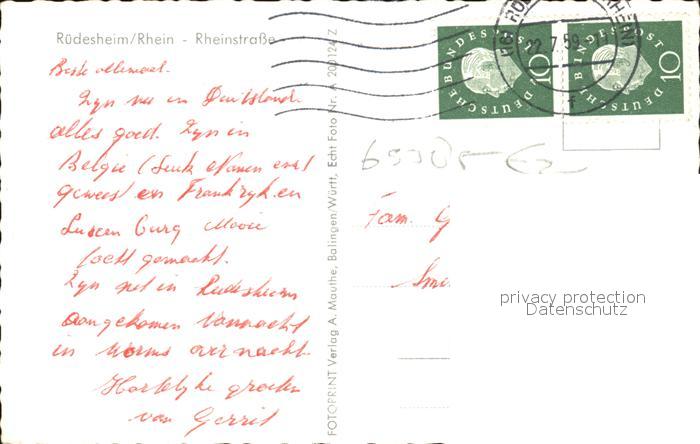 Rüdesheim/Rhein - Rheinstraße
Beste allemaal.
Zyn nu in Duitsland
alles goed. Zyn in
Belgie (Luik Namen enz)
geweest en Frankryk en
Luxemburg Mooie
tocht gemaakt.
Zyn net in Rudesheim
aangekomen Vannacht
in Worms overnacht.
Hartelyke groeten
van Gerrit
FOTOPRINT Verlag A. Mauthe, Balingen/Württ, Echt Foto Nr. A
DEUTSCHE BUNDESPOST
10
DEUTSCHE BUNDESPOST
10
22.7.59
Fam. G
privacy protection
Datenschutz